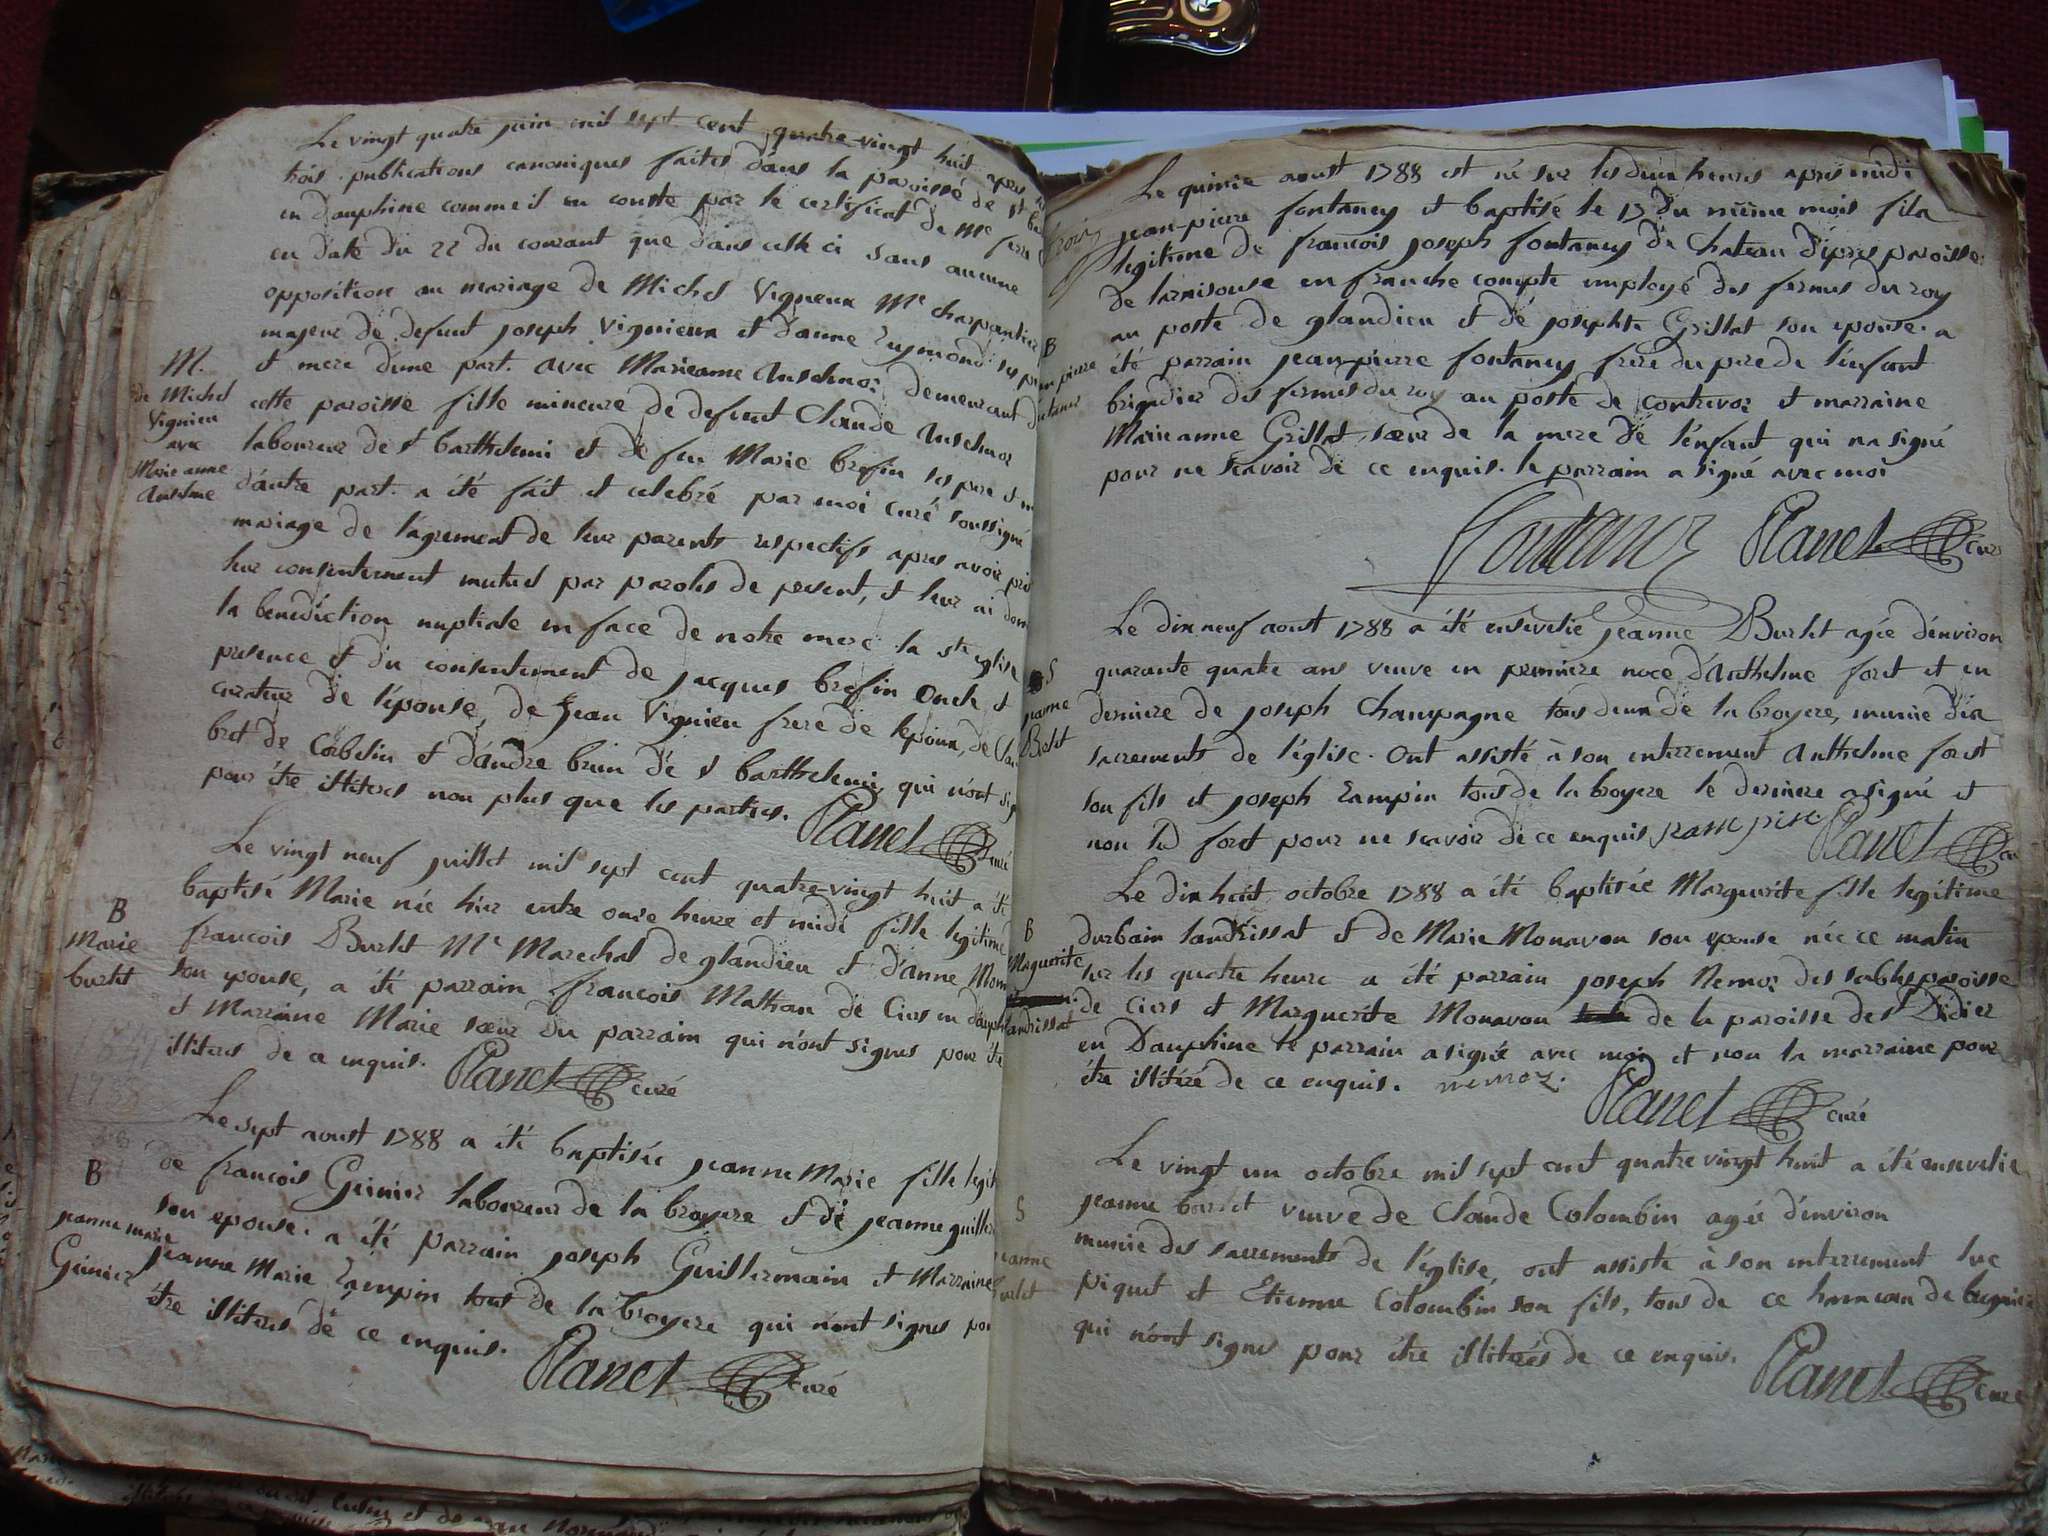 Le vingt quatre juin mil sept cent quatre vingt huit apres
trois publications canoniques faites dans la paroisse de st
en dauphine comme il en conste par le certificat de Mr
en date du 22 du courant que dans celle ci sans aucune
opposition au mariage de Michel Vigneux Me charpantier
majeur de defunt joseph Vignieux et d'anne Reymond ses
M.
de Michel
Vignieu
avec
Marie anne
Anselme
et mere d'une part. avec Marieanne Anselmoz demeurant
cette paroisse fille mineure de defunt Claude Anselmoz
laboureur de st barthelemi et de feu Marie brefin ses pere et
d'autre part. a été fait et celebré par moi curé soussigné
mariage de l'agrement de leur parents respectifs apres avoir pris
leur consentement mutuel par paroles de present, et leur ai
la benediction nuptiale en face de notre mere la ste eglise
presence et du consentement de jacques brefin oncle et
curateur de l'épouse, de Jean Vignieu frere de l'epoux, de
bret de Corbelin et d'andre brun de st barthelemi, qui n'ont
pour être illiteres non plus que les parties. Planet curé
B
Marie
burlet
Le vingt neuf juillet mil sept cent quatre-vingt huit a été
baptisé Marie née hier entre onze heure et midi fille legitime
francois Burlet Me Marechal de glandieu et d'anne
son epouse, a été parrain francois Mathan de Ciers en
et Marraine Marie sœur du parrain qui n'ont signes pour être
illiteres de ce enquis. Planet curé
B
jeanne marie
Guinier
Le sept aoust 1788 a été baptisée jeanne Marie fille
de francois Guinier laboureur de la broyere et de jeanne
son epouse. a été parrain joseph Guillermain et Marraine
jeanne Marie Rampin tous de la broyere qui n'ont signes
être illiteres de ce enquis.
Planet curé
Le quinze aoust 1788 est né sur les deux heures apres midi
jean-pierre fontaney et baptisé le 17 du même mois fils
legitime de francois joseph fontaney de Chateau d'épres paroisse
de laraisouse en franche compte employé des fermes du roy
au poste de glandieu et de josephte Grillat son epouse. a
B
pierre
été parrain jean-pierre fontaney frere du pere de l'enfant
brigadier des fermes du roy au poste de Contrevoz et marraine
Marie anne Grillat, sœur de la mere de l'enfant qui na signé
pour ne scavoir de ce enquis. le parrain a signé avec moi
Planet curé
S
jeanne
Belet
Le dix neuf aoust 1788 a été ensevelie jeanne Burlet agée d'environ
quarante quatre ans veuve en premiere noce d'Anthelme foret et en
derniere de joseph Champagne tous deux de la broyere, munie des
sacrements de l'église. Ont assisté à son enterrement Anthelme foret
son fils et joseph Rampin tous de la broyere le derniere a signé et
non led foret pour ne scavoir de ce enquis Planet
B
Marguerite
landrissat
Le dix huit octobre 1788 a été baptisée Marguerite fille legitime
durbain landrissat et de Marie Monavon son epouse née ce matin
sur les quatre heure a été parrain joseph Nemoz des sables paroisse
de Ciers et Marguerite Monavon de la paroisse de st Didier
en Dauphine le parrain a signé avec moi et non la marraine pour
être illitéré de ce enquis. nemoz.
Planet curé
S
jeanne
Le vingt un octobre mil sept cent quatre vingt huit a été ensevelie
jeanne veuve de Claude Colombin agée d'environ
munie des sacrements de l'église, ont assiste à son enterrement luc
piquet et Etienne Colombin son fils, tous de ce hameau de
qui n'ont signes pour être illiterés de ce enquis.
Planet curé